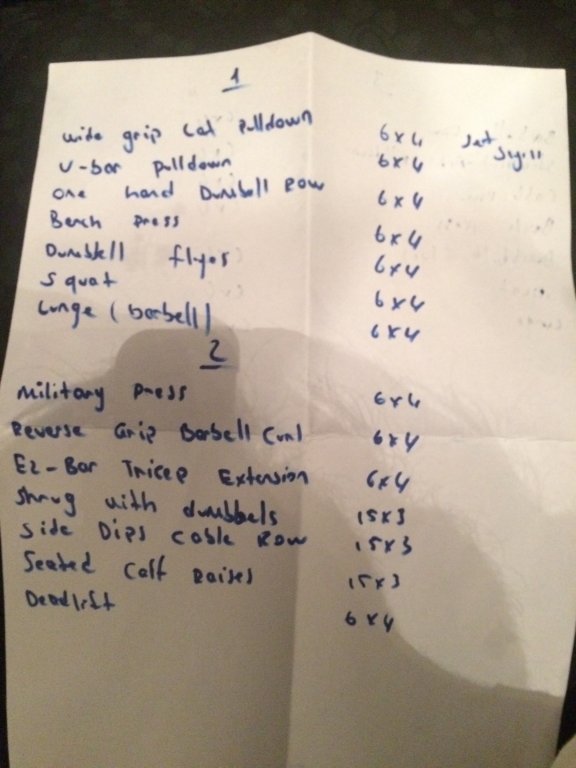 1
wide grip Lat Pulldown 6x4
V-bar Pulldown 6x4
one hand Dumbell Row 6x4
Bench Press 6x4
Dumbbell flyes 6x4
Squat 6x4
Lunge (barbell) 6x4
2
Military Press 6x4
Reverse Grip Barbell Curl 6x4
EZ-Bar Tricep Extension 6x4
Shrug with dumbbels 15x3
Side Dips Cable Row 15x3
Seated Calf Raises 15x3
Deadlift 6x4